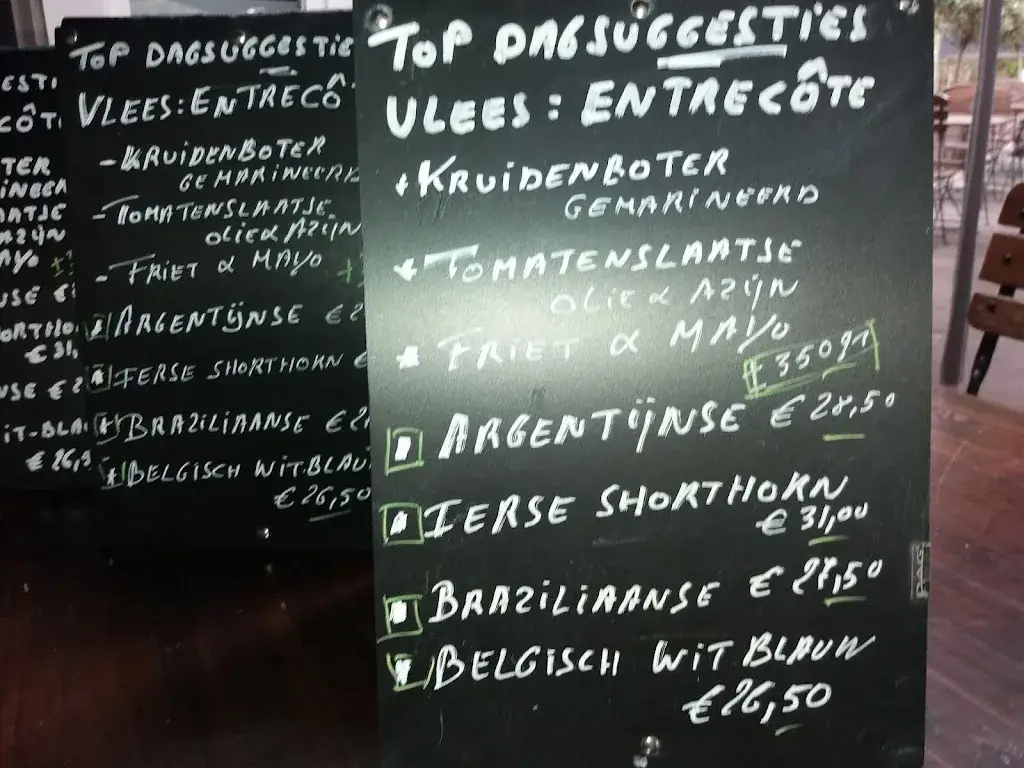 TOP DAGSUGGESTIES
VLEES: ENTRECÔTE
+ KRUIDENBOTER
GEMARINEERD
+ TOMATENSLAATSE
OLIE & AZIJN
FRIET & MAYO
± 350 gr
ARGENTIJNSE € 28,50
IERSE SHORTHORN
€ 31,00
BRAZILIAANSE € 27,50
BELGISCH WIT BLAUW
€ 26,50
TOP DAGSUGGESTIE
VLEES: ENTRECÔ
- KRUIDENBOTER
GEMARINEERD
- TOMATENSLAATJE
OLIE & AZIJN
- FRIET & MAYO
ARGENTIJNSE € 2
IERSE SHORTHORN €
BRAZILIAANSE € 2
BELGISCH WIT.BLAU
€ 26,50
ESTI
CÔT
TER
AZIJN
AYO
€ 31,
€ 26,5